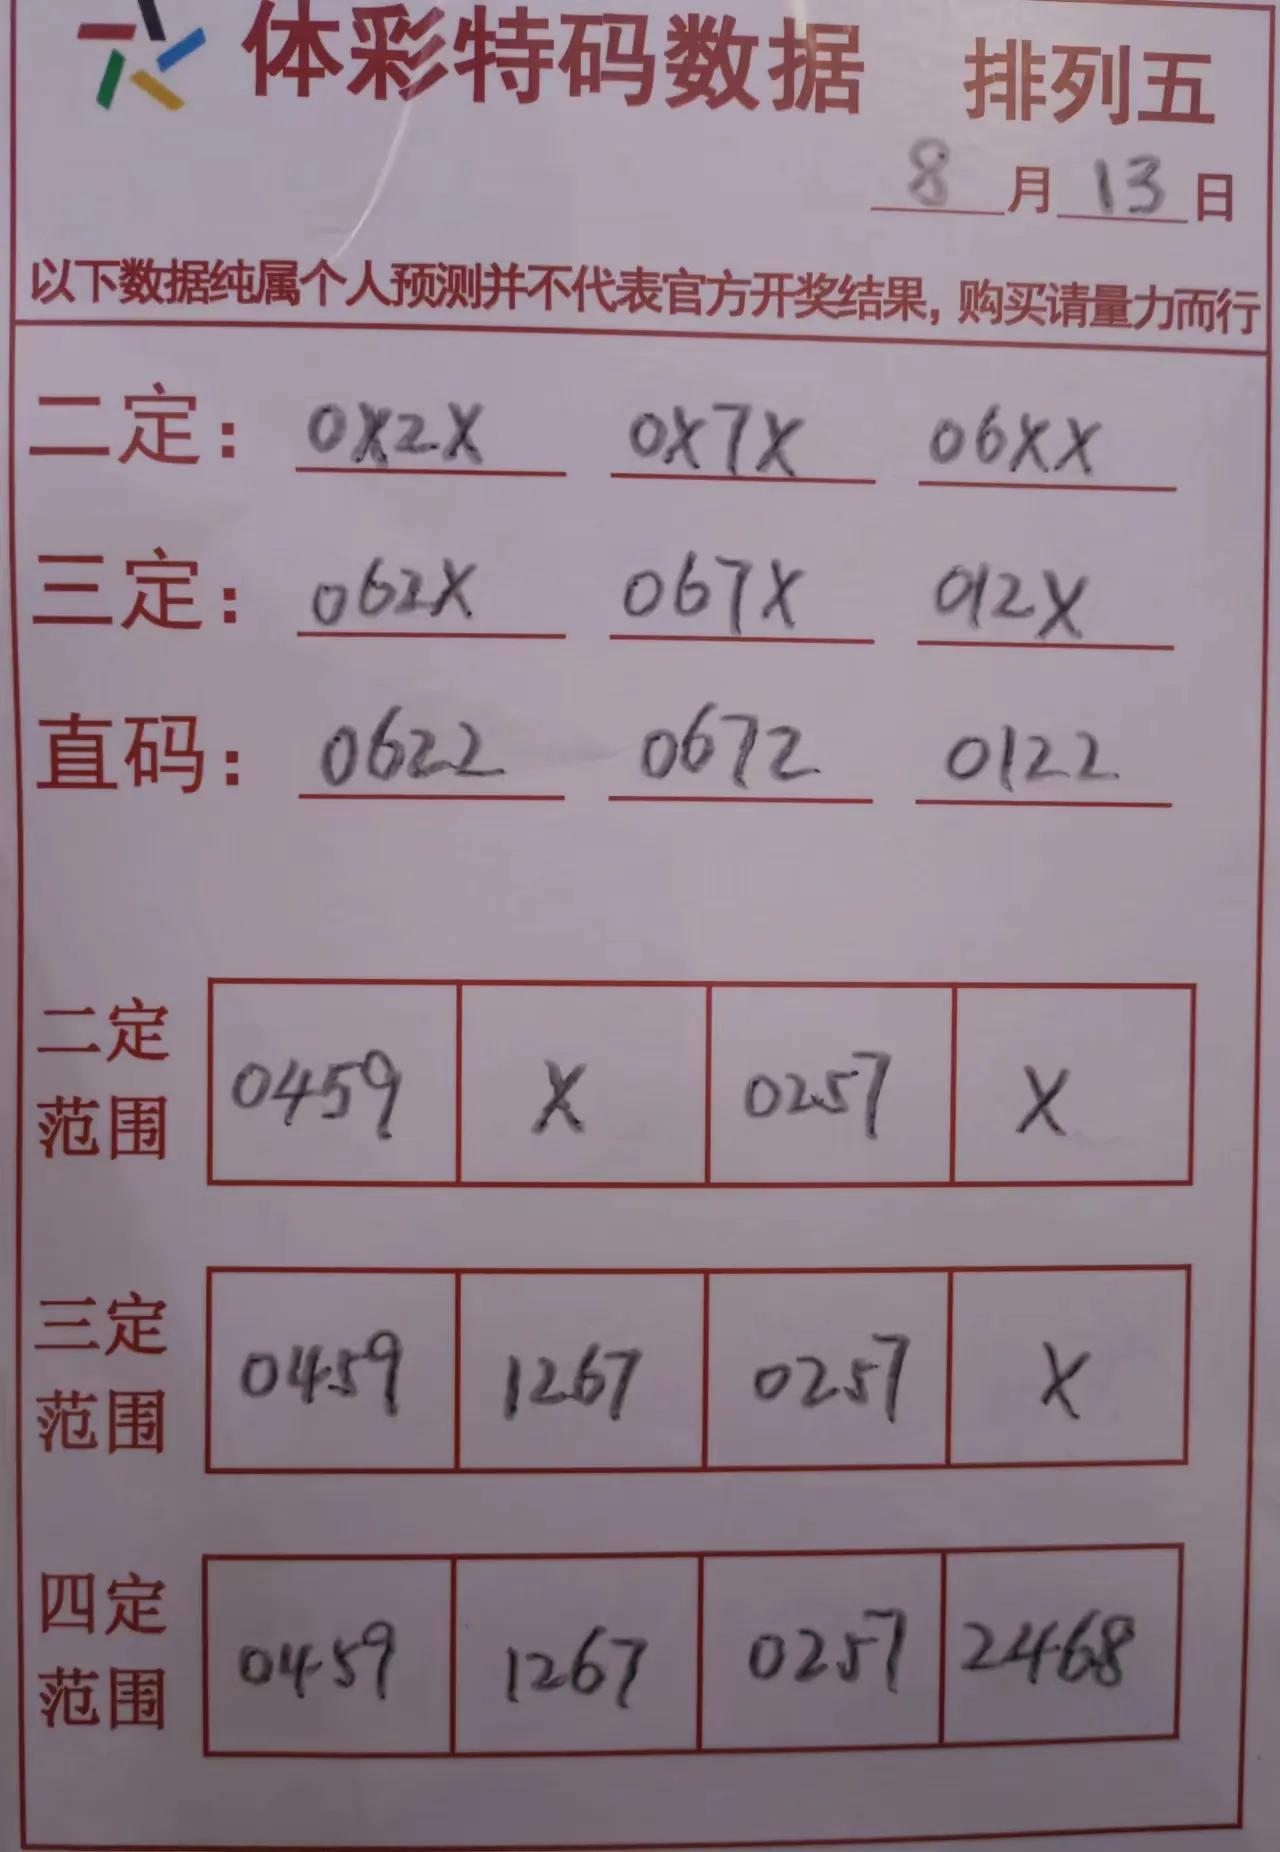 体彩特码数据 排列五
8月13日
以下数据纯属个人预测并不代表官方开奖结果，购买请量力而行
二定： 0X2X 0X7X 06XX
三定： 062X 067X 012X
直码： 0622 0672 0122
二定范围 0459 X 0257 X
三定范围 0459 1267 0257 X
四定范围 0459 1267 0257 2468